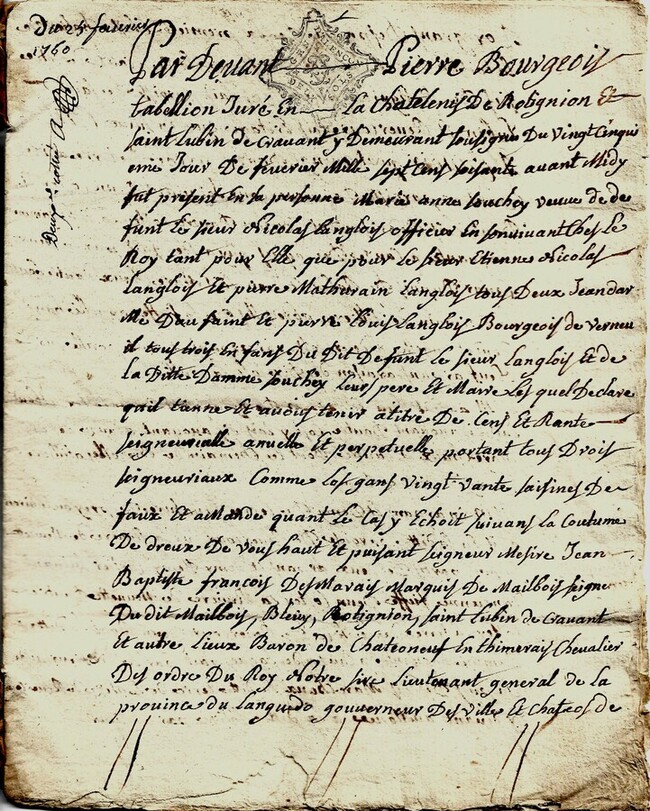 Du 25 feverier
1760
Deux
Par Devant Pierre Bourgeois
tabellion Juré En la Chatelenis De Rotignion Et
saint Lubin de Cravant y Demeurant sousigné Du vingt Cinqui
eme Jour De feverier Mille sept Cens soisante avant Midy
fut présent En sa personne Marie anne souchey veuve de de
funt le sieur Nicolas Langlois officier En sonvivant Ches Le
Roy tant pour Elle que pour le sieur Etienne Nicolas
Langlois Et pierre Mathurain Langlois tous Deux Jeandar
Me Dau faint Et pierre Louis Langlois Bourgeois de verneu
il tous trois En fans Du Dit Defunt le sieur Langlois Et de
la Ditte Damme souchey Leurs pere Et Marre Les quel Declare
quil tanne Et avous tenir atitre De Cens Et Rante
seigneurialle anuelle Et perpetuelle portant tous Drois
seigneuriaux Comme Los gans vingt vante saisines De
faux Et aMande quant le Cas y Echoit suivans la Coutume
De dreux De vous haut Et puisant seigneur Mesire Jean
Baptiste francois DesMarais Marquis De Mailbois seigne
Du dit Mailbois, Blevy, Rotignion, saint Lubin de Cravant
Et autre Lieux Baron de Chateoneuf En thimerais Chevalier
Des ordre Du Roy Notre sire Lieutenant general de la
province du Languedo gouverneur Des ville Et Chateos de